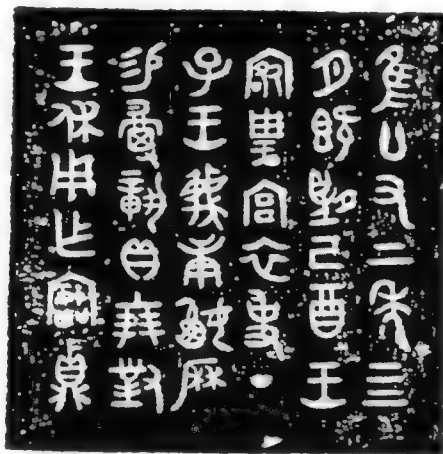 隹廿又二年四
月既望己酉王
客琱宮衣事丁
巳王蔑庚嬴曆
易爵璋貝十朋對
王休用乍寶鼎